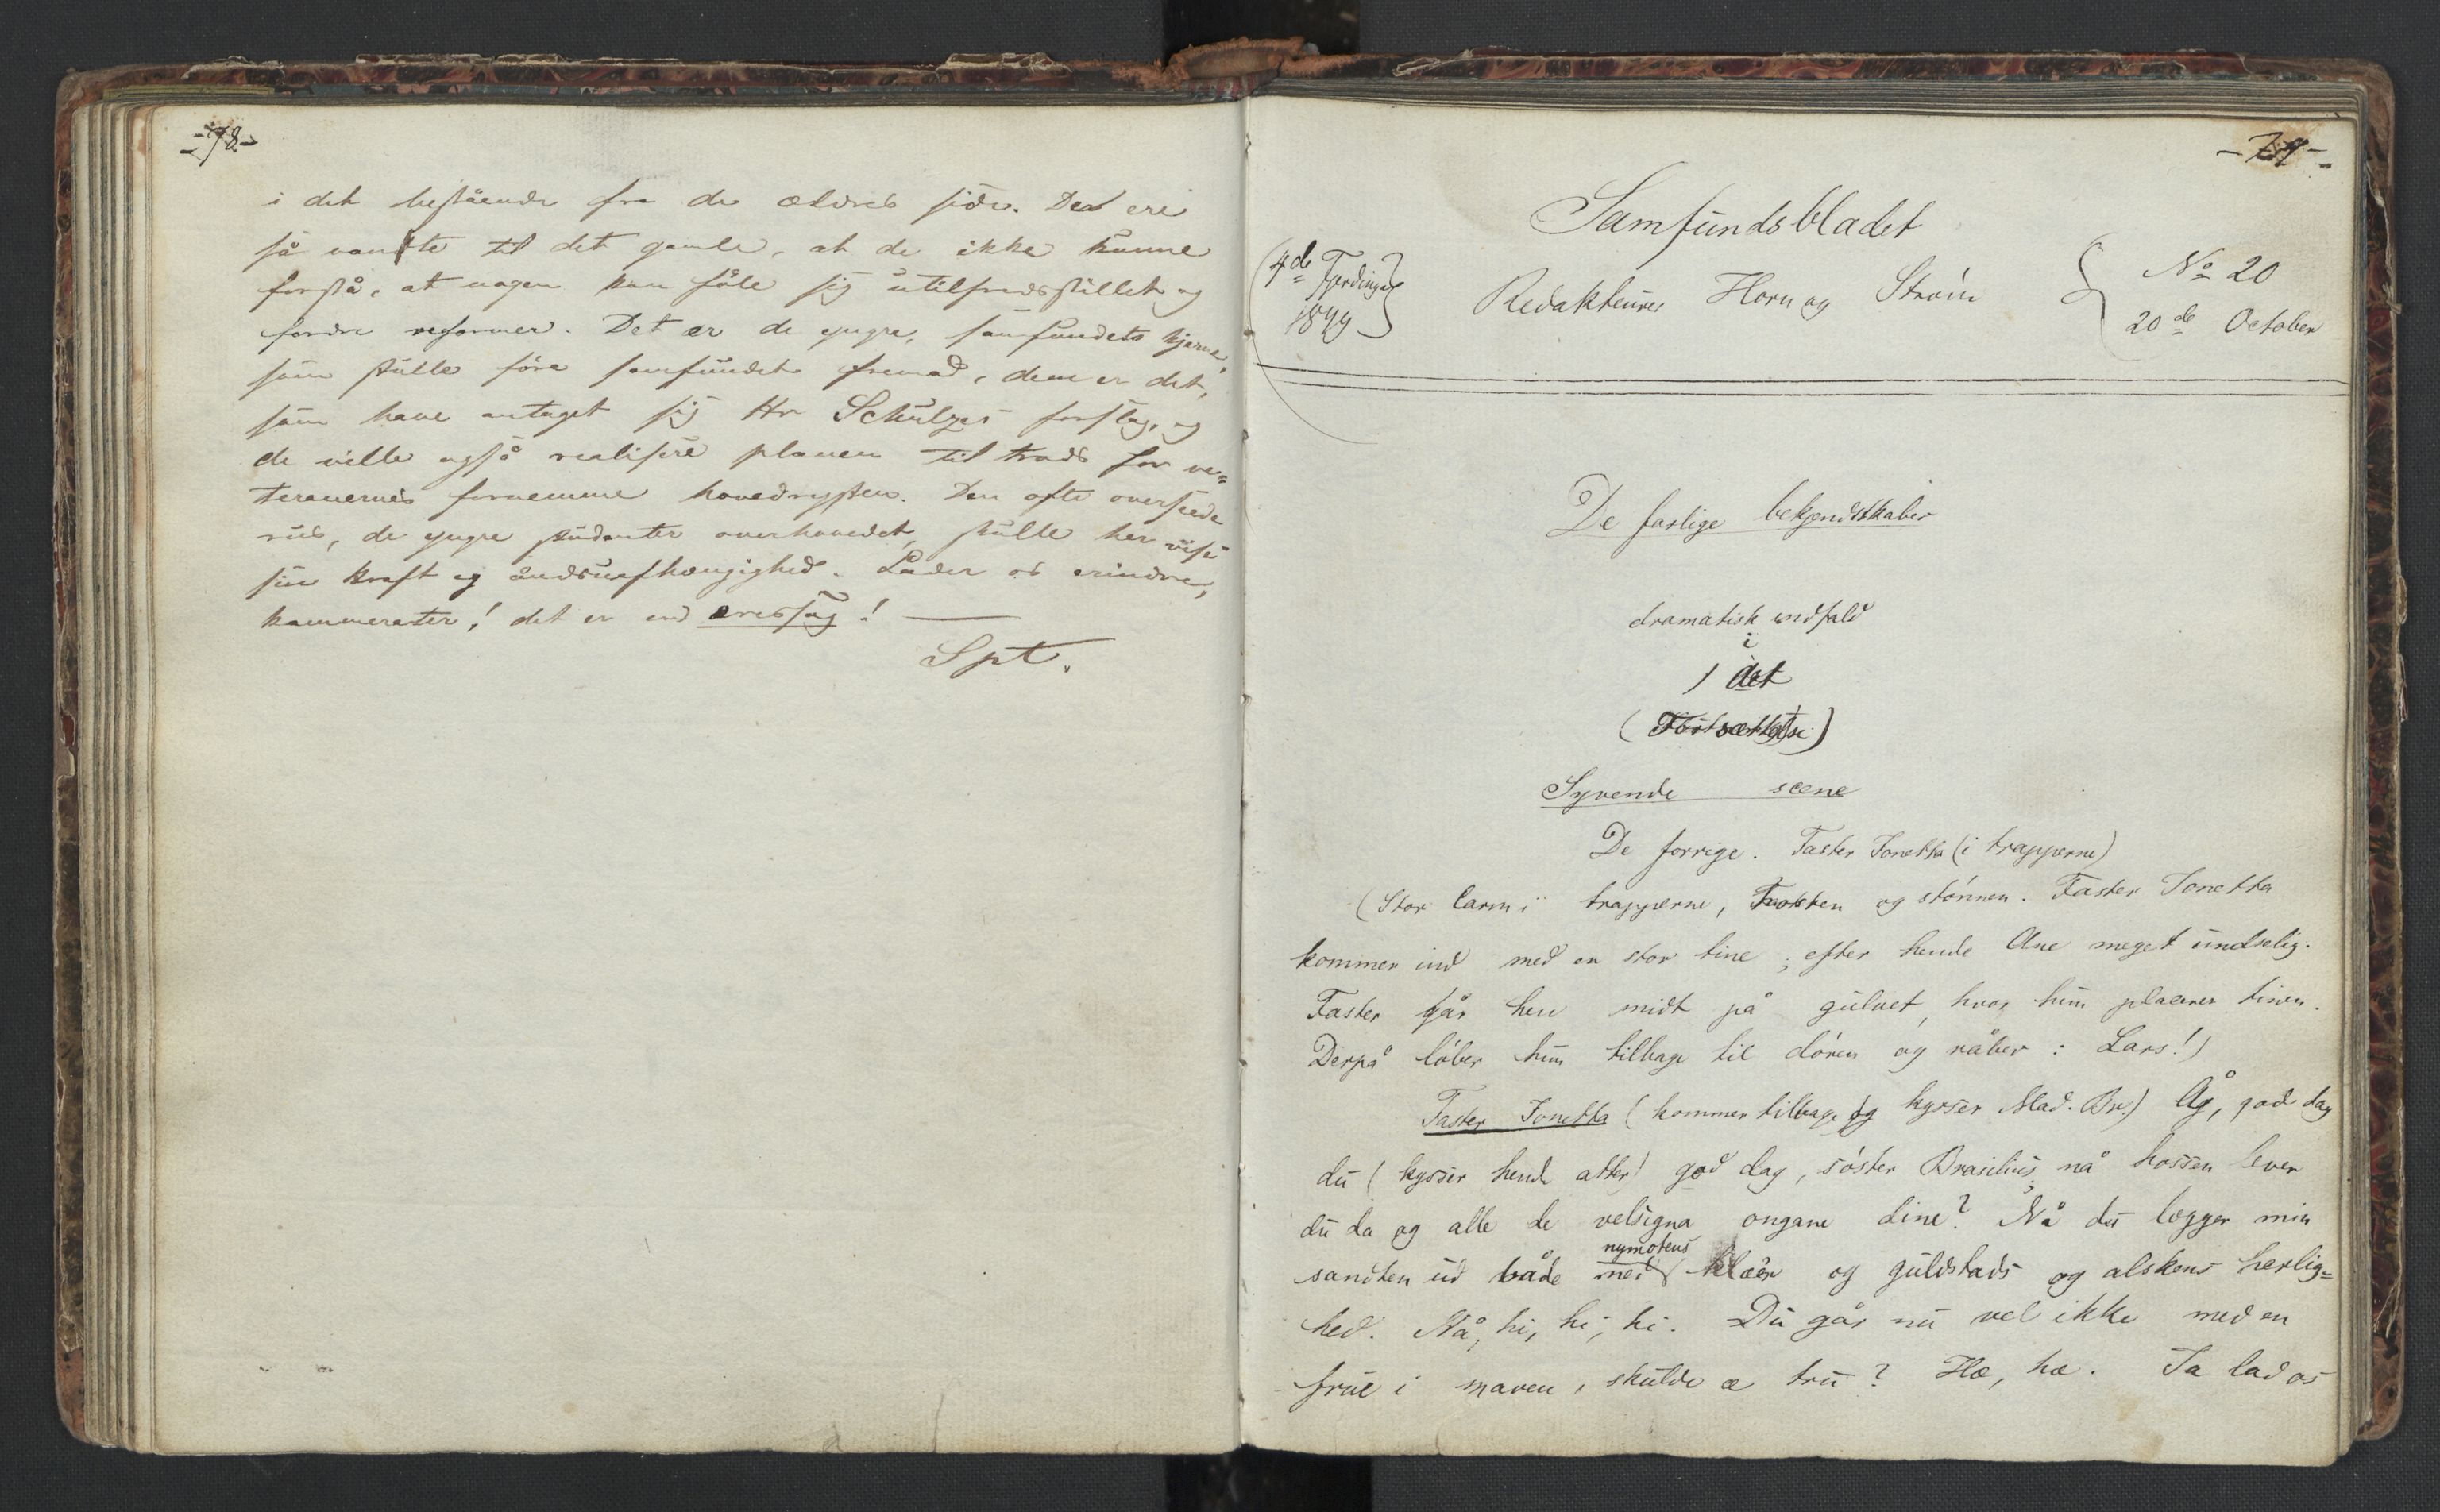 -78-
i det bestående fra de ældres side. De ere
så vante til det gamle, at de ikke kunne
forstå, at nogen kan föle sig utilfredsstillet og
fordre reformer. Det er de yngre, samfundets kjerne,
som skulle före samfundet fremad, dem er det,
som have antaget sig Hr Schulzes forslag, og
de ville også realisere planen til trods for ve=
teranernes fornemme hovedrysten. Den ofte overseede
rus, de yngre studenter overhovedet, skulle her vise
sin kraft og åndsuafhængighed. Lader os erindre,
kammerater! det er en æressag! —
Spt.
-79-
Samfundsbladet
4de Fjerdingår
1849
Redakteurer Horn og Ström
No 20
20de October
De farlige bekjendtskaber
dramatisk indfald
i
1 act
(Fortsættelse)
Syvende scene
De forrige. Faster Jonetta (i trapperne)
(Stor larm i trapperne, og stönnen. Faster Jonetta
kommer ind med en stor tine; efter hende Ane meget undselig.
Faster går hen midt på gulvet, hvor hun placerer tinen.
Derpå löber hun tilbage til dören og råber: Lars!)
Faster Jonetta (kommer tilbage og kysser Mad. Br.) Å, god dag
du (kysser hende atter) god dag, söster Brasilius, nå hossen lever
du da og alle de velsigna ongane dine? Nå du logger min
nymotens
sandten ud både med klæer og guldstads og alskens herlig=
hed. Nå, hi, hi, hi. Du går nu vel ikke med en
frue i maven, skulde æ tru? Hæ, hæ. Ja lad os